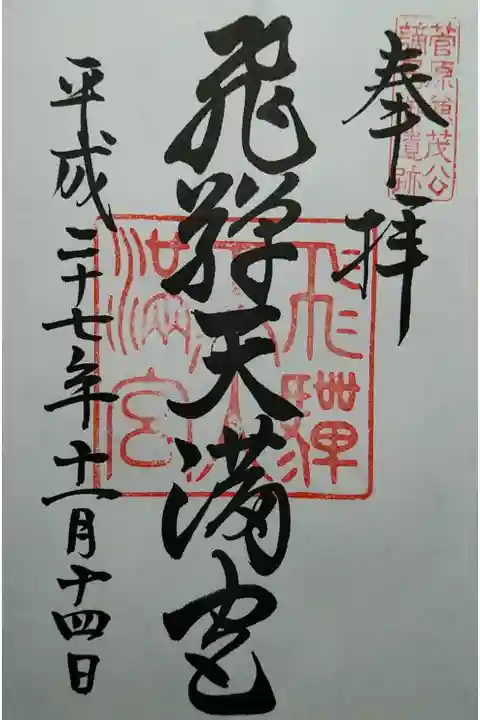 菅原兼茂公
遺跡
奉拝
飛騨天満宮
飛騨
天
満宮
平成二十七年十一月十四日